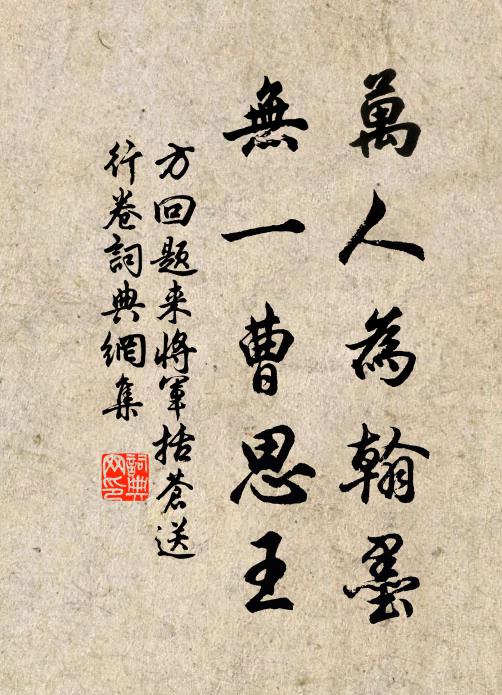 萬人為翰墨
無一曹思王
方回題来將軍括蒼送
行卷詞典網集
詞典
网印